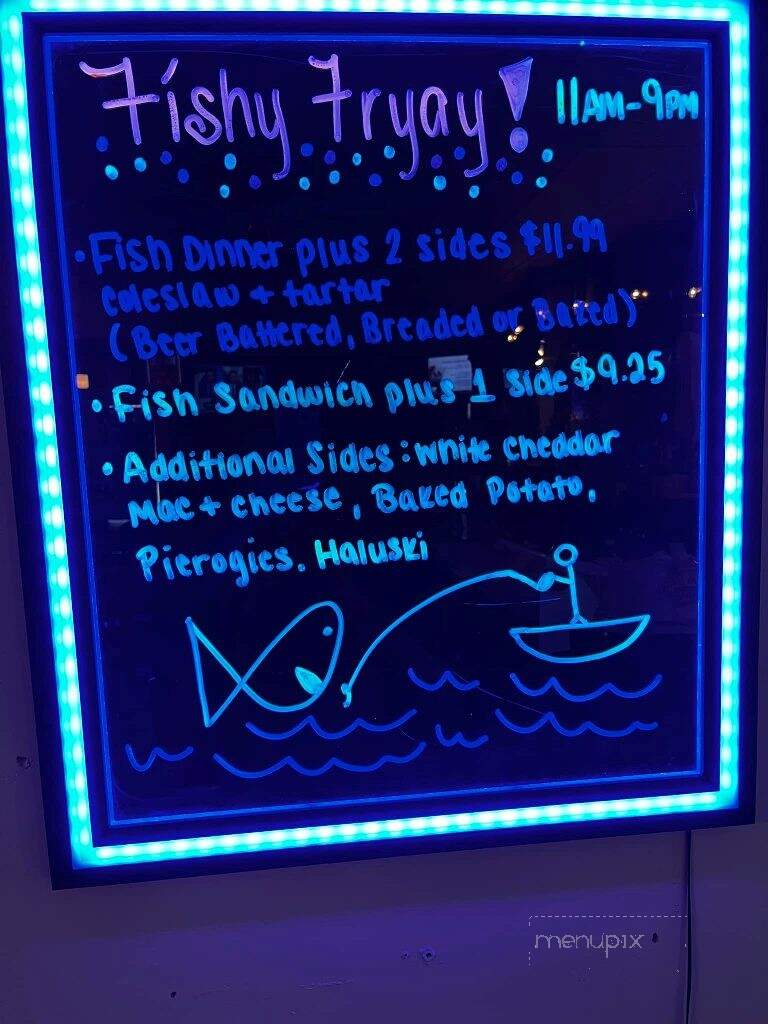 Fishy Fryay! 11AM-9PM
• Fish Dinner plus 2 sides $11.99
coleslaw + tartar
(Beer Battered, Breaded or Baked)
• Fish Sandwich plus 1 side $9.25
• Additional Sides: White cheddar
Mac + cheese, Baked Potato,
Pierogies. Haluski
menupix